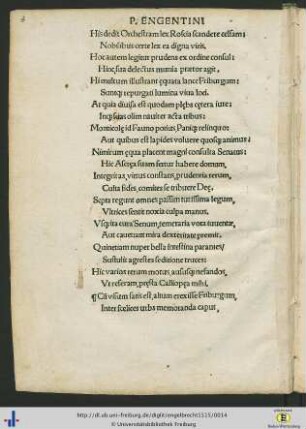 P. ENGENTINI
His dedit Orchestram lex Roscia scandere celsam:
Nobilibus certe lex ea digna viris.
Hoc autem legitur prudens ex ordine consul:
Hinc sua delectus munia prætor agit.
Hi multum illustrant æquata lance Friburgum:
Suntq; repurgati lumina viua loci.
At quia diuisa est quodam plebs cętera iure:
Inq; suas olim nauiter acta tribus:
Monticolę id Fauno potius, Paniq; relinquo:
Aut quibus est lapides voluere quosq; animus:
Nimirum ęqua placent magni consulta Senatus:
Hic Astręa suam fertur habere domum,
Integritas, virtus constans, prudentia rerum,
Casta fides, comites se tribuere Deę,
Septa regunt omneis passim tutissima legum,
Vltrices sentit noxia culpa manus,
Vsq; ita cum Senum, temeraria vota iuuentæ,
Aut caueant mira dexteritate premit,
Quinetiam nuper bella intestina parantes/
Sustulit agrestes seditione truces:
Hic varios rerum motus, aususq; nefandos,
Vt referam, pręsta Calliopęa mihi,
¶ Cū visum satis est, altum erexisse Friburgum,
Inter foelices urbs memoranda caput
http://dl.ub.uni-freiburg.de/diglit/engelbrecht1515/0014
© Universitätsbibliothek Freiburg